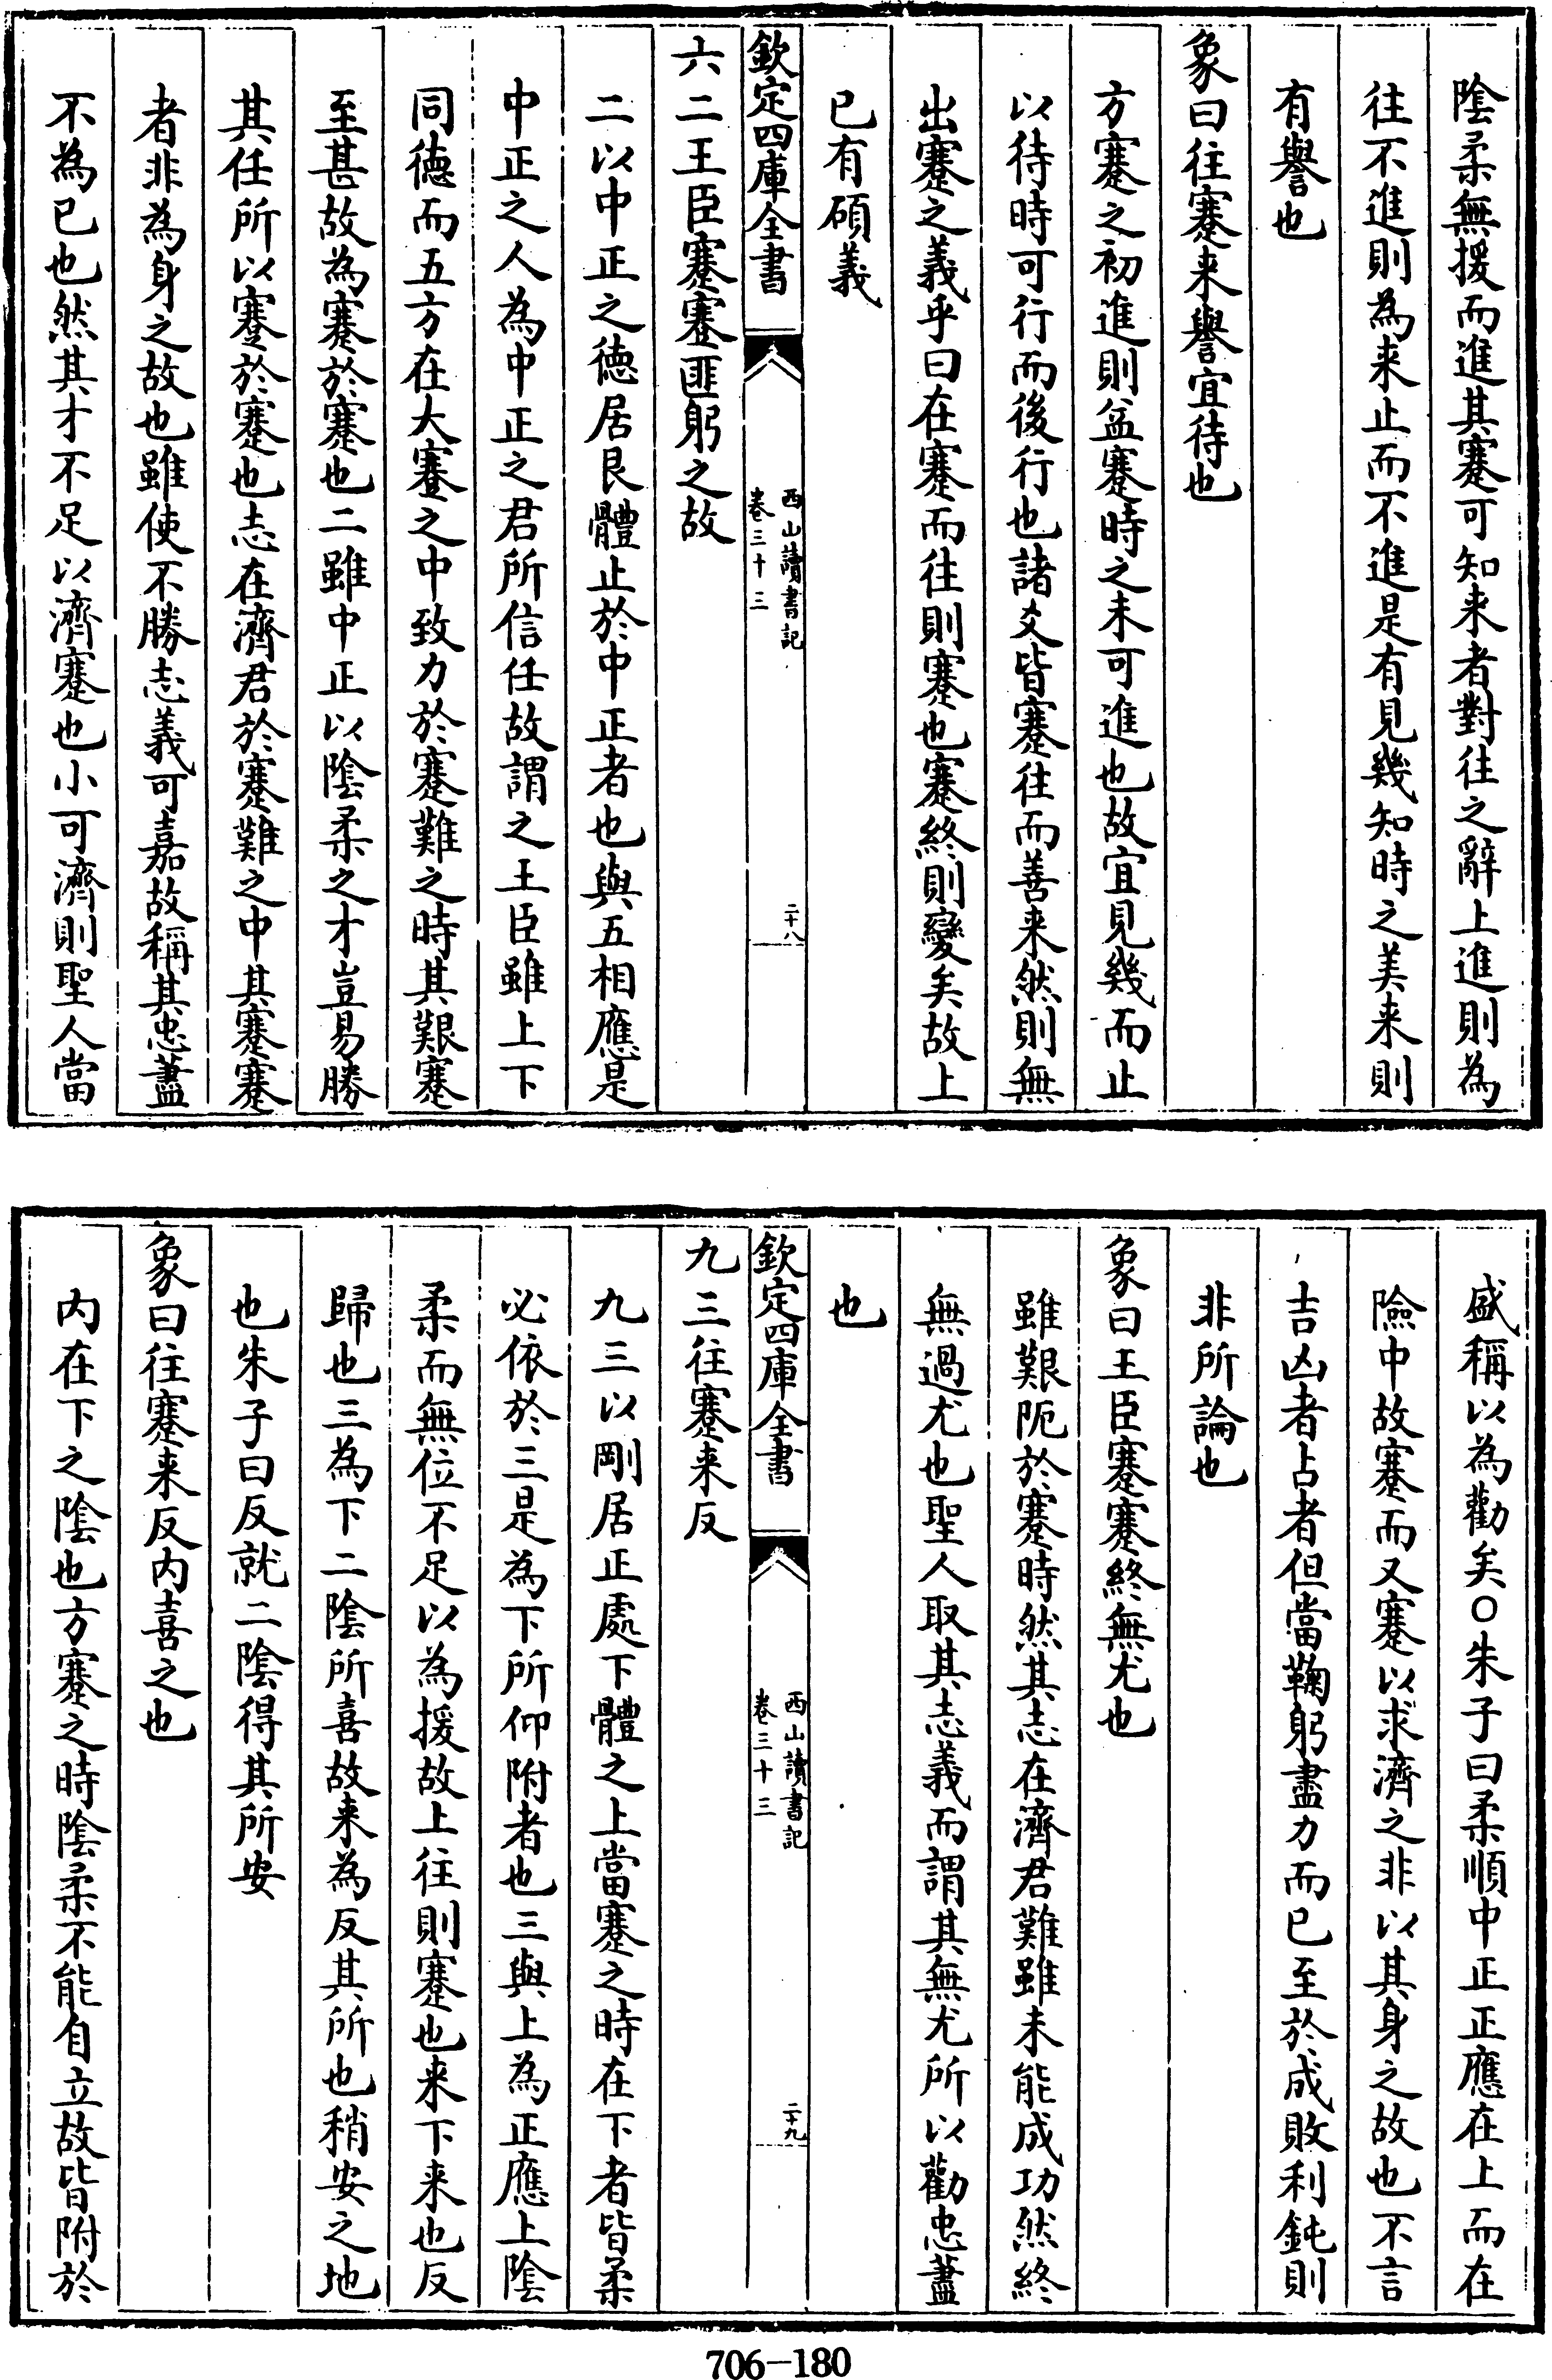 陰柔無援而進其蹇可知来者對往之辭上進則為
往不進則為来止而不進是有見幾知時之美来則
有譽也
象曰往蹇来譽宜待也
方蹇之初進則益蹇時之未可進也故宜見幾而止
以待時可行而後行也諸爻皆蹇往而善来然則無
出蹇之義乎曰在蹇而往則蹇也蹇終則變矣故上
已有碩義
欽定四庫全書
西山讀書記
卷三十三
二十八
六二王臣蹇蹇匪躬之故
二以中正之德居艮體止於中正者也與五相應是
中正之人為中正之君所信任故謂之王臣雖上下
同德而五方在大蹇之中致力於蹇難之時其艱蹇
至甚故為蹇於蹇也二雖中正以陰柔之才豈易勝
其任所以蹇於蹇也志在濟君於蹇難之中其蹇蹇
者非為身之故也雖使不勝志義可嘉故稱其忠藎
不為已也然其才不足以濟蹇也小可濟則聖人當
盛稱以為勸矣○朱子曰柔順中正正應在上而在
險中故蹇而又蹇以求濟之非以其身之故也不言
吉凶者占者但當鞠躬盡力而已至於成敗利鈍則
非所論也
象曰王臣蹇蹇終無尤也
雖艱阨於蹇時然其志在濟君難雖未能成功然終
無過尤也聖人取其志義而謂其無尤所以勸忠藎
也
欽定四庫全書
西山讀書記
卷三十三
二十九
九三往蹇来反
九三以剛居正處下體之上當蹇之時在下者皆柔
必依於三是為下所仰附者也三與上為正應上陰
柔而無位不足以為援故上往則蹇也来下来也反
歸也三為下二陰所喜故来為反其所也稍安之地
也朱子曰反就二陰得其所安
象曰往蹇来反内喜之也
内在下之陰也方蹇之時陰柔不能自立故皆附於
706-180